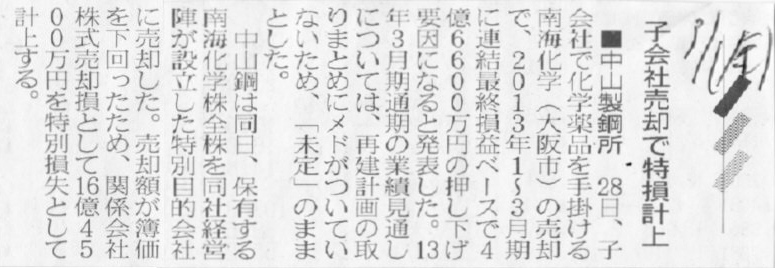 子会社売却で特損計上
■中山製鋼所 28日、子
会社で化学薬品を手掛ける
南海化学（大阪市）の売却
で、2013年1～3月期
に連結最終損益ベースで4
億6600万円の押し下げ
要因になると発表した。13
年3月期通期の業績見通し
については、再建計画の取
りまとめにメドがついてい
ないため、「未定」のまま
とした。
中山鋼は同日、保有する
南海化学株全株を同社経営
陣が設立した特別目的会社
に売却した。売却額が簿価
を下回ったため、関係会社
株式売却損として16億45
00万円を特別損失として
計上する。